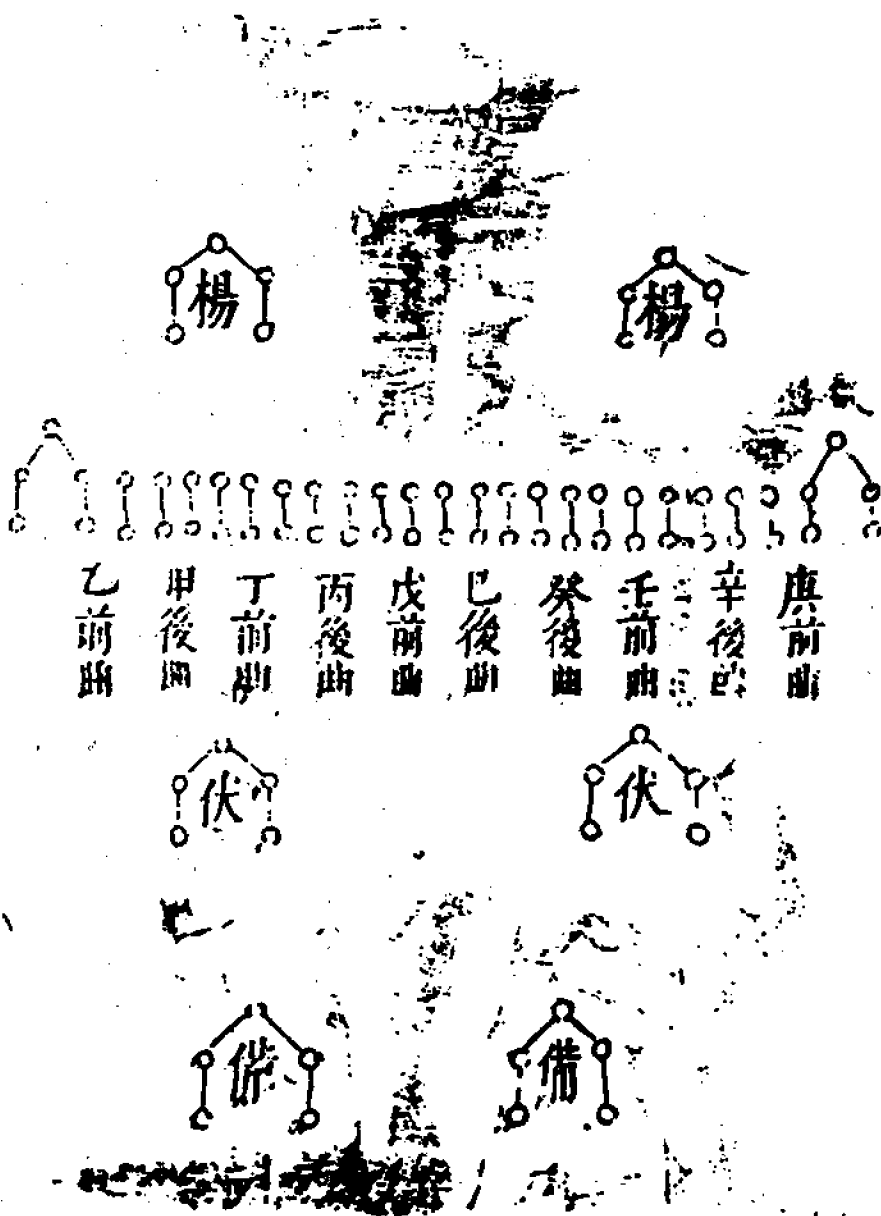 楊
楊
庚前曲
辛後曲
壬前曲
癸後曲
巳後曲
戊前曲
丙後曲
丁前曲
甲後曲
乙前曲
伏
伏
備
備